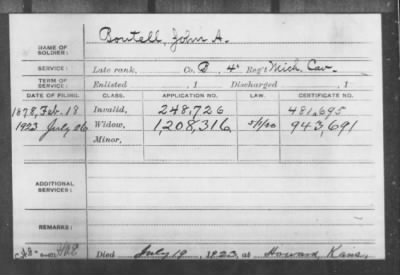 Boutell, John A.
NAME OF SOLDIER:
SERVICE: Late rank, Co. B, 4" Reg't Mich. Cav.
TERM OF SERVICE: Enlisted , 1 Discharged , 1
DATE OF FILING. CLASS. APPLICATION NO. LAW. CERTIFICATE NO.
1878, Feb. 18 Invalid, 248,726 481,695
1923 July 26 Widow, 1,208,316 5/1/20 943,691
Minor,
ADDITIONAL SERVICES:
REMARKS:
Died July 19, 1923, at Howard, Kans.